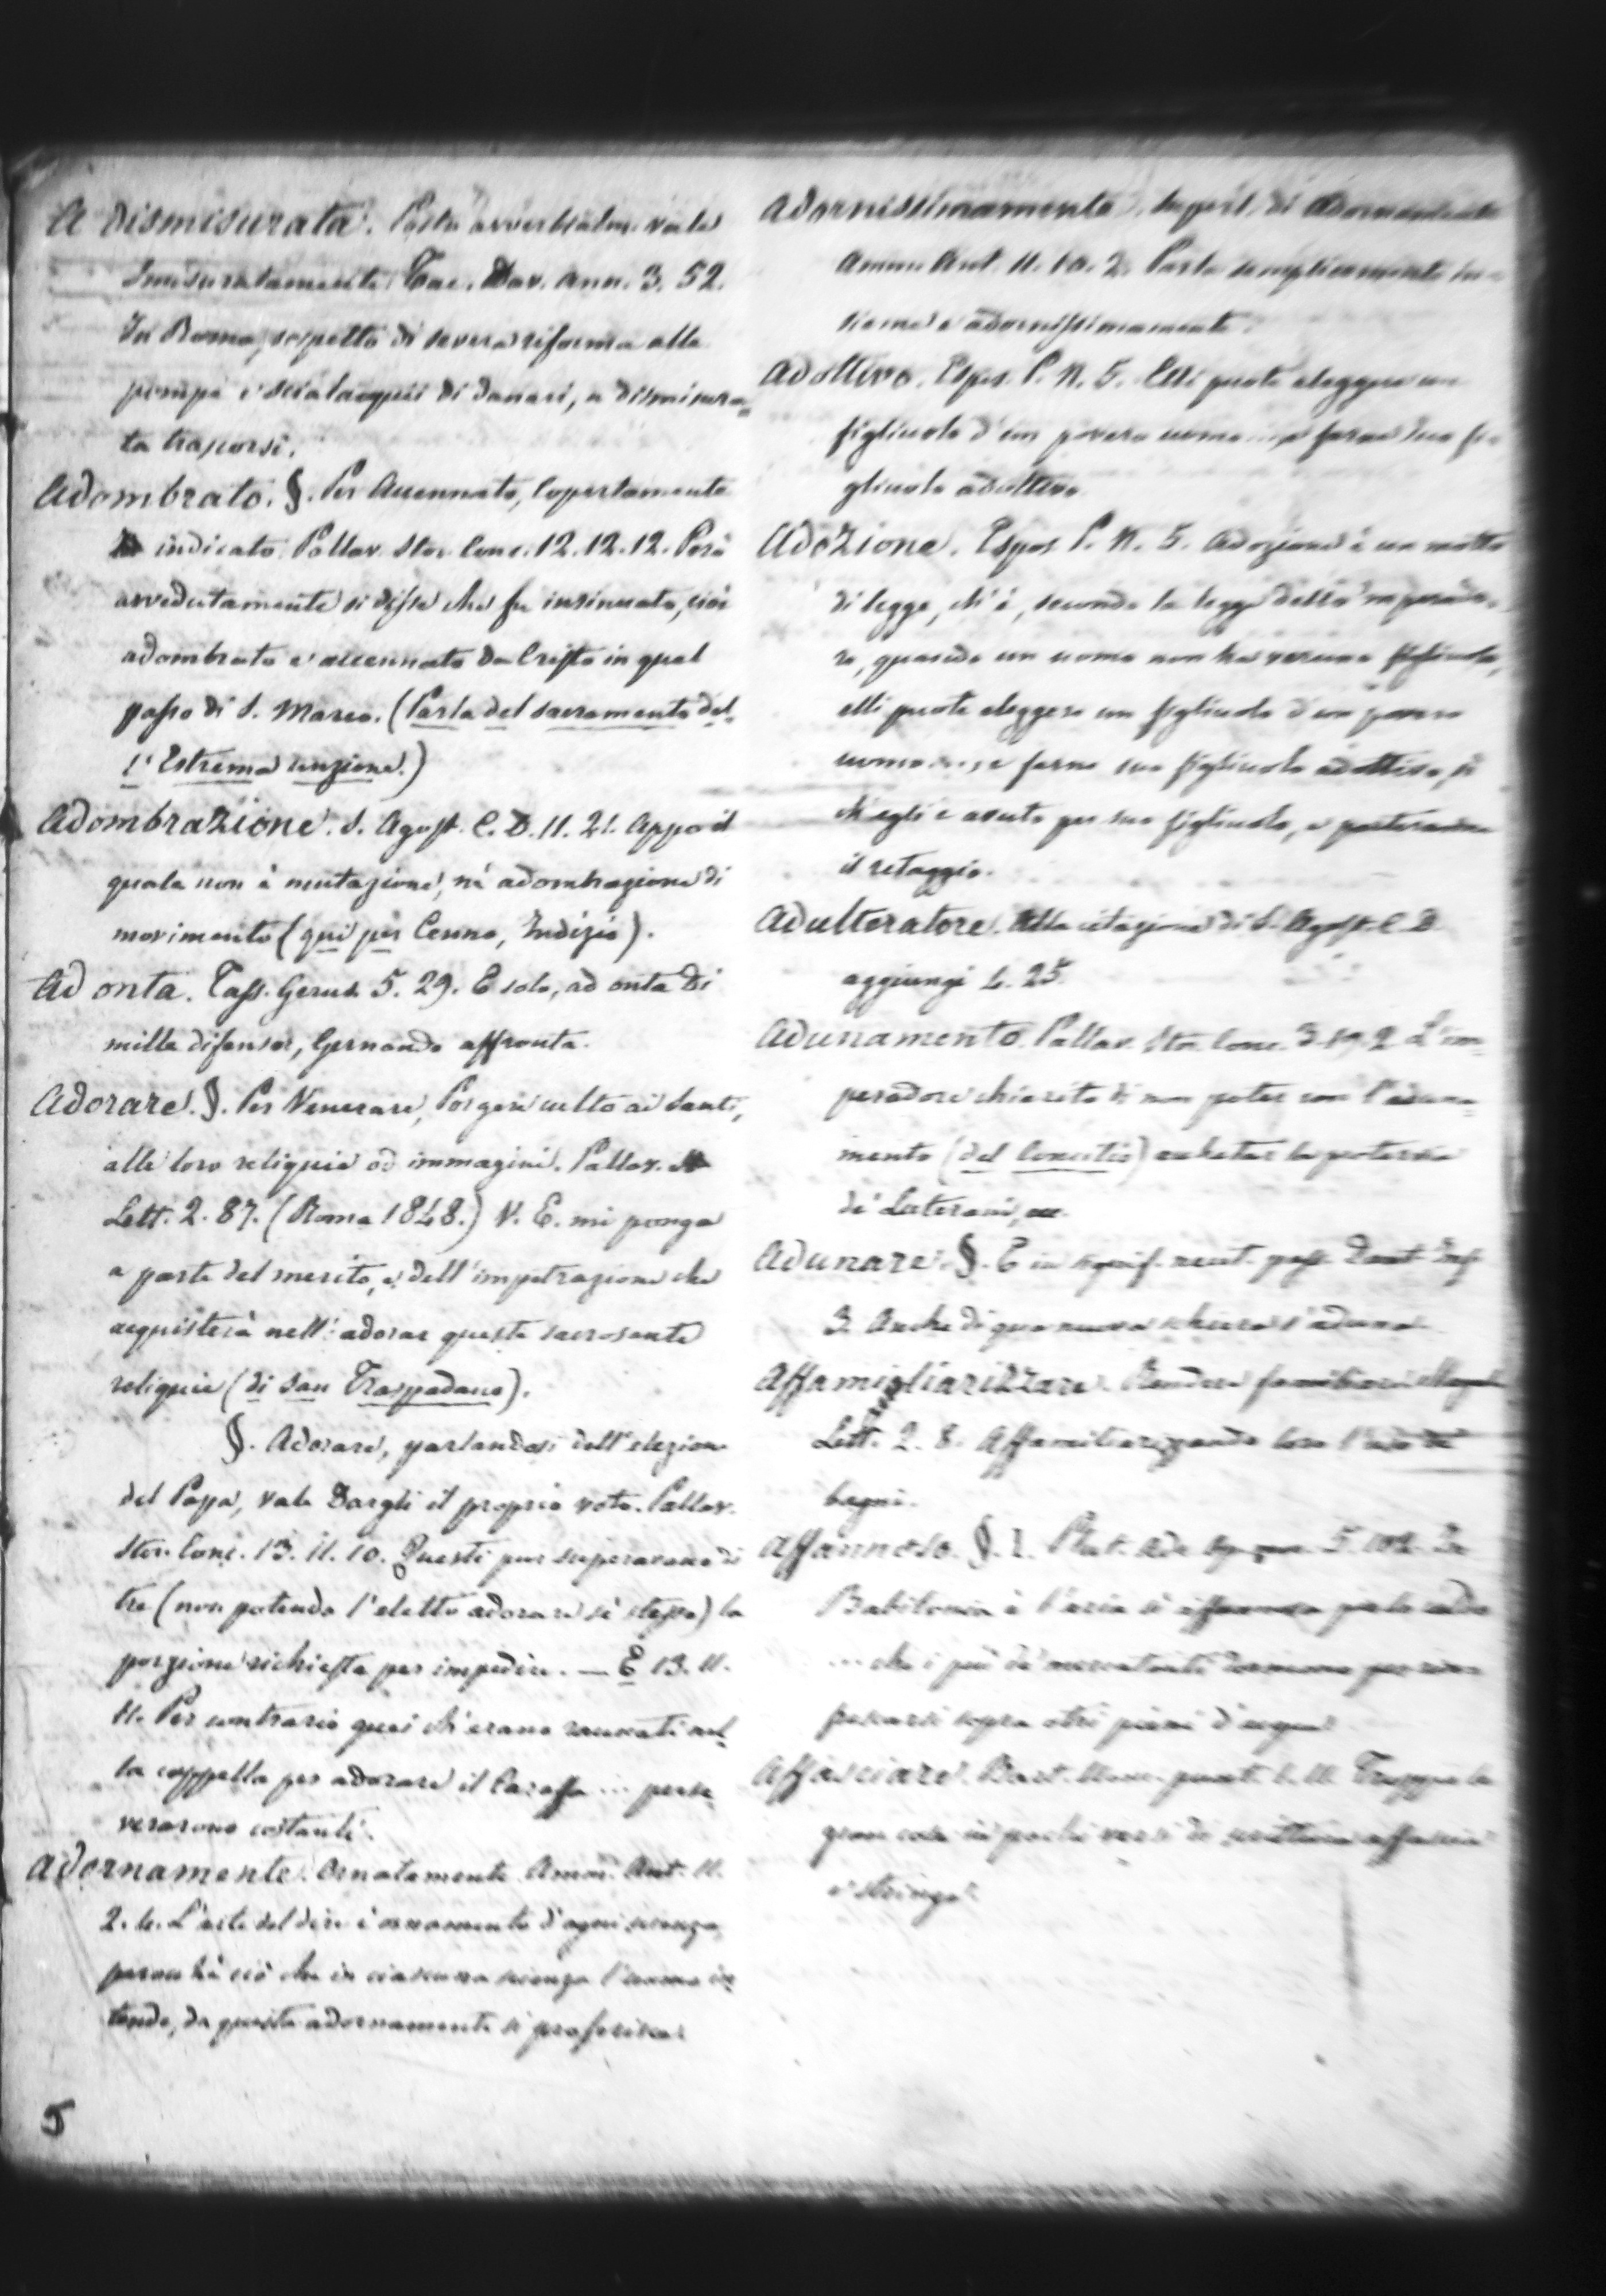 A dismisurata. Posto avverbialm. vale
Smisuratamente. Tac. Dav. Ann. 3. 52.
In Roma, sospetto di severa riforma alle
pompe e scialacquii di danari, a dismisura-
ta trascorsi.
Adombrato. §. Per Accennato, Copertamente
indicato. Pallav. Stor. Conc. 12. 12. 12. Però
avvedutamente si disse che fu insinuato, cioè
adombrato e accennato da Cristo in quel
passo di S. Marco. (Parla del sacramento del-
l'Estrema unzione.)
Adombrazione. S. Agost. C. D. 11. 21. Appo il
quale non è mutazione, nè adombrazione di
movimento (qui per Cenno, Indizio).
Ad onta. Tass. Gerus. 5. 29. E solo, ad onta di
mille difensor, Gernando affronta.
Adorare. §. Per Venerare, Porgere culto ai Santi,
alle loro reliquie od immagini. Pallav.
Lett. 2. 87. (Roma 1848.) V. E. mi ponga
a parte del merito, e dell'impetrazione che
acquisterà nell'adorar queste sacrosante
reliquie (di san Traspadano).
§. Adorare, parlandosi dell'elezione
del Papa, vale Dargli il proprio voto. Pallav.
Stor. Conc. 13. 11. 10. Questi pur superavano di
tre (non potendo l'eletto adorare sè stesso) la
porzione richiesta per impedire. — E 13. 11.
11. Per contrario quei ch'erano raunati nel-
la cappella per adorare il Caraffa ... perse-
verarono costanti.
Adornamente. Ornatamente. Amm. Ant. 11.
2. 4. L'arte del dire è ornamento d'ogni scienza,
perocchè ciò che in ciascuna scienza l'uomo in-
tende, da questa adornamente si proferisce.
Adornissimamente. Superl. di Adornamente
Amm. Ant. 11. 10. 2. Parla semplicemente in-
sieme e adornissimamente.
Adottivo. Espos. P. N. 5. Elli puote eleggere un
figliuolo d'un povero uomo ... e farne suo fi-
gliuolo adottivo.
Adozione. Espos. P. N. 5. Adozione è un motto
di legge, ch'è, secondo la legge dello 'mperado-
re, quando un uomo non ha veruno figliuolo,
elli puote eleggere un figliuolo d'un povero
uomo ... e farne suo figliuolo adottivo, sì
ch'egli è avuto per suo figliuolo, e porteranne
il retaggio.
Adulteratore. Alla citazione di S. Agost. C. D.
aggiungi L. 25.
Adunamento. Pallav. Stor. Conc. 3. 19. 2. L'im-
peradore chiarito di non poter con l'aduna-
mento (del Concilio) la protervia
de' Luterani, ec.
Adunare. §. E in signif. neut. pass. Dant. Inf.
3. Anche di qua nuova schiera s'aduna.
Affamigliarizzare. Rendere familiare.
Lett. 2. 8. Affamiliarizzando loro l'uso de'
bagni.
Affannoso. §. 1. 5. 102. In
Babilonia è l'aria sì affannosa per lo caldo
... che i più de' mercatanti dormono per
sopra otri pieni d'acqua.
Affasciare. Bart. Troppo
gran cose in pochi versi di scrittura affascia
e stringe.
5